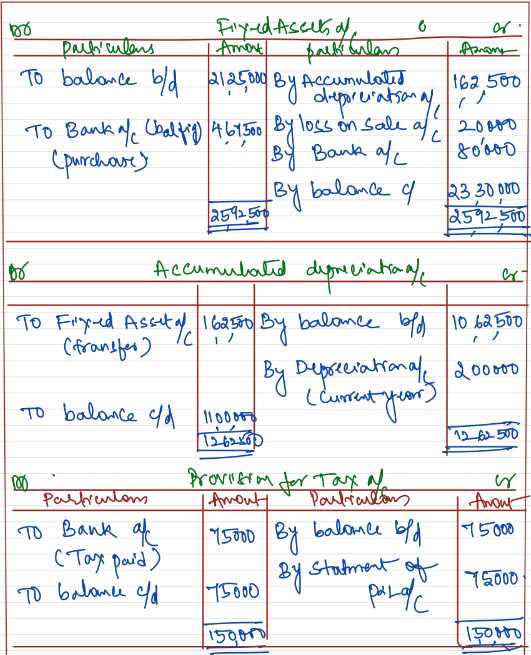 Dr Fixed Assets a/c Cr.
Particulars Amount Particulars Amount
To balance b/d 2125,000 By Accumulated depreciation a/c 162,500
To Bank a/c (bal fig) (purchase) 467,500 By loss on sale a/c 20000
By Bank a/c 80,000
By balance c/ 23,30,000
2592,500 2592,500
Dr Accumulated depreciation a/c Cr
To Fixed Asset a/c (transfer) 162500 By balance b/d 10,62,500
By Depreciation a/c (Current year) 200000
To balance c/d 1100000
12,62,500 12,62,500
Dr Provision for Tax a/c Cr
Particulars Amount Particulars Amount
To Bank a/c (Tax paid) 75000 By balance b/d 75000
To balance c/d 75000 By Statment of P&L a/c 75000
150,000 150,000